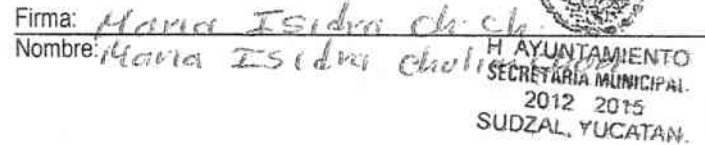 Firma: Maria Isidra Ch. Ch.
Nombre: Maria Isidra
H AYUNTAMIENTO
SECRETARIA MUNICIPAL.
2012 2015
SUDZAL, YUCATAN.